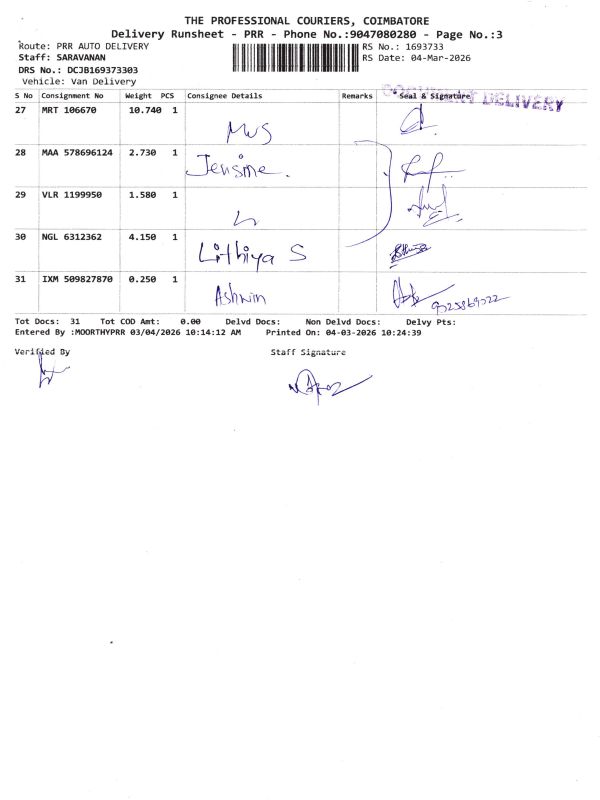 THE PROFESSIONAL COURIERS, COIMBATORE
Delivery Runsheet - PRR - Phone No.:9047080280 - Page No.:3
Route: PRR AUTO DELIVERY
RS No.: 1693733
Staff: SARAVANAN
RS Date: 04-Mar-2026
DRS No.: DCJB169373303
Vehicle: Van Delivery
S No Consignment No Weight PCS Consignee Details Remarks Seal & Signature
DOCUMENT DELIVERY
27 MRT 106670 10.740 1
MWS
28 MAA 578696124 2.730 1
Jerisme.
29 VLR 1199950 1.580 1
30 NGL 6312362 4.150 1
Lithiya S
31 IXM 509827870 0.250 1
Ashwin
Tot Docs: 31 Tot COD Amt: 0.00 Delvd Docs: Non Delvd Docs: Delvy Pts:
Entered By :MOORTHYPRR 03/04/2026 10:14:12 AM Printed On: 04-03-2026 10:24:39
Verified By Staff Signature